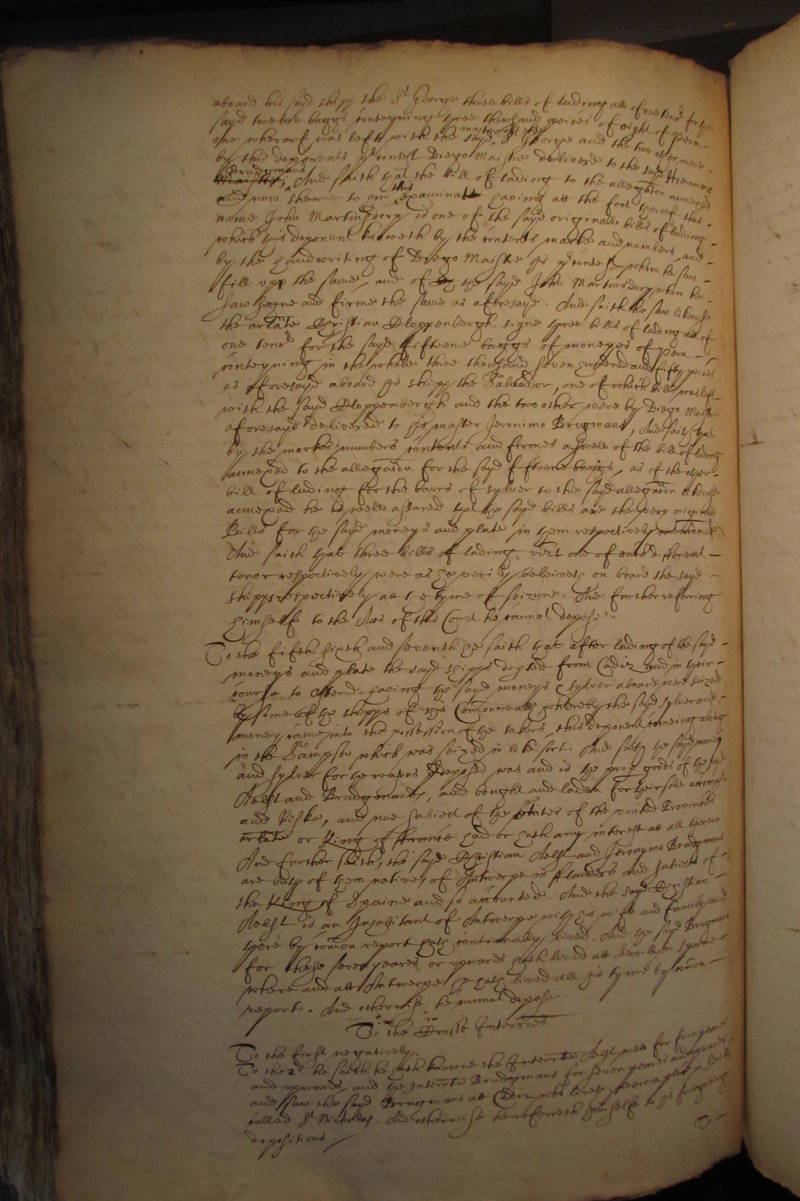 aboard his sayd shipp the St George three bills of lading all of one tenor for the
sayd twelve baggs conteyning three thousand peeces of eight of
one whereof was left with the sayd master of the St George and the two other were
by this deponents contest Diego Maistre delivered to the sayd Hieronimo
Brudgmans, And saith that the bill of lading to the allegacion annexed
and now showne to him this examinate having att the foot thereof the
name John Martinsdorp is one of the sayd originall bills of lading
which this deponent knoweth by the contents marke and numbers, and
by the handwriting of Diego Maistre his contest whom he saw
fill upp the same, and of the sayd John Martinsdorp whom he
saw signe and firme the same as aforesayd. And saith hee saw likewise
the arlate Christian Cloppenbergh signe three bills of lading all of
one tenor for the sayd fifteene baggs of moneyes of
conteyning in the whole three thousand seven hundred and fifty peeces
as aforesayd aboard his shipp the Salvador, one of which bills was left
with the sayd Cloppenbergh and the two other were by Diego Maistre
aforesayd delivered to his master Jeronimo Brugmans, And saith that
by the markes numbers contents and firmes as well of the bill of lading
annexed to the allegacion for the sayd fifteene baggs, as of the other
bill of lading for the barrs of sylver to the sayd allegacion likewise
annexed he is well assured that the sayd bills are the very originall
Bills for the sayd moneys and plate in them respectively mentioned
And saith that three bills of lading, vizt one of each different
tenor respectively were as he verily beleiveth on board the sayd
shipps respectively att the tyme of seizure. And further referring
himselfe to the Acts of this Court he cannot depose.
To the fifth sixth and seventh he saith that after lading of the sayd
moneys and plate the sayd shipps departed from Cadiz and in their
course to Ostend having the sayd moneys &amp; sylver aboard were seized
by some of the shipps of this Commonwealth whereby the sayd sylver and
money came into the possession of the takers, this deponent comeing along
in the Sampson which was seized in like sort. And saith the sayd money
and sylver for the reasons deposed was and is the proper goods of the sayd
Aelst and Brudgmans, and bought and laden for their sole accompt
and riske, and noe subiect of the States of the united Provinces
arlate or King of ffrance had or hath any interest att all therein
And further saith, the sayd Christian Aelst and Jeronymo Brudgmans
are both of them natives of Antwerpe in fflanders and subiects of
the King of Spaine and so accounted. And the sayd Christian
Aelst is an Inhabitant of Antwerpe with his wife and family and
there by common report hath continually lived. And the sayd Brugmans
for these seven yeares or upwards hath lived att Sevill in Spaine
where and att Antwerpe he hath lived all his tyme by common
report. And otherwise he cannot depose.
To the Crosse Interries
To the first negatively.
To the 2d he saith he hath knowne the Interrate Aelst
and upwards, and the Interrate Brudgmans for seven yeares and upwards
and saw the sayd Brudgmans att Cadiz
called St Nicholas. And otherwise hee referreth himselfe to his foregoing
depositions.